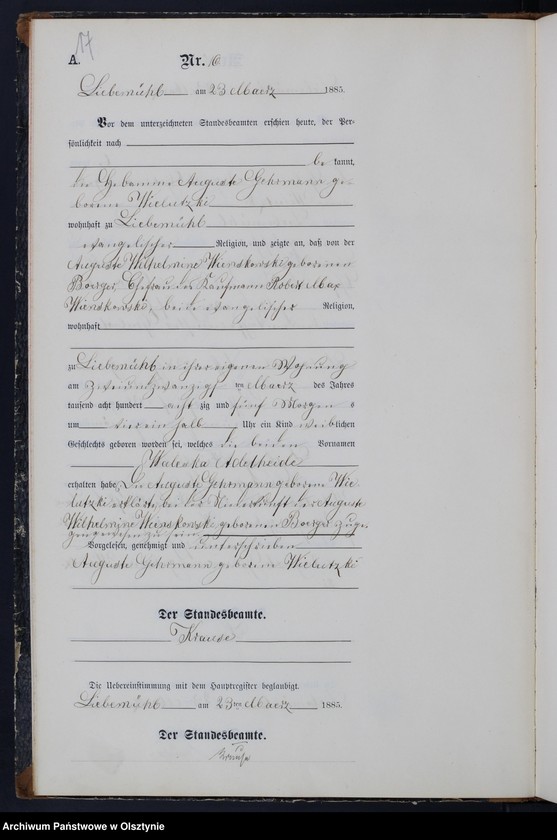 17
A. Nr. 16
Liebemühl am 23 Maerz 1885.
Vor dem unterzeichneten Standesbeamten erschien heute, der Per-
sönlichkeit nach
be kannt,
die Hebamme Auguste Gehrmann ge-
borene Wielutzki
wohnhaft zu Liebemühl
evangelischer Religion, und zeigte an, daß von der
Auguste Wilhelmine Wienskowski geborenen
Boerger, Ehefrau des Kaufmann Robert Max
Wienskowski, beide evangelischer Religion,
wohnhaft
zu Liebemühl in ihrer eigenen Wohnung
am zweiundzwanzigsten Maerz des Jahres
tausend acht hundert acht zig und fünf Morgens
um vier ein halb Uhr ein Kind weiblichen
Geschlechts geboren worden sei, welches die beiden Vornamen
Waleska Adelheide
erhalten habe. Die Auguste Gehrmann geborene Wie
lutzki erklärte, bei der Niederkunft der Auguste
Wilhelmine Wienskowski geborenen Boerger zuge-
gen gewesen zu sein.
Vorgelesen, genehmigt und unterschrieben
Auguste Gehrmann geborene Wielutzki
Der Standesbeamte.
Krause
Die Uebereinstimmung mit dem Hauptregister beglaubigt.
Liebemühl am 23ten Maerz 1885.
Der Standesbeamte.
Krause
Archiwum Państwowe w Olsztynie